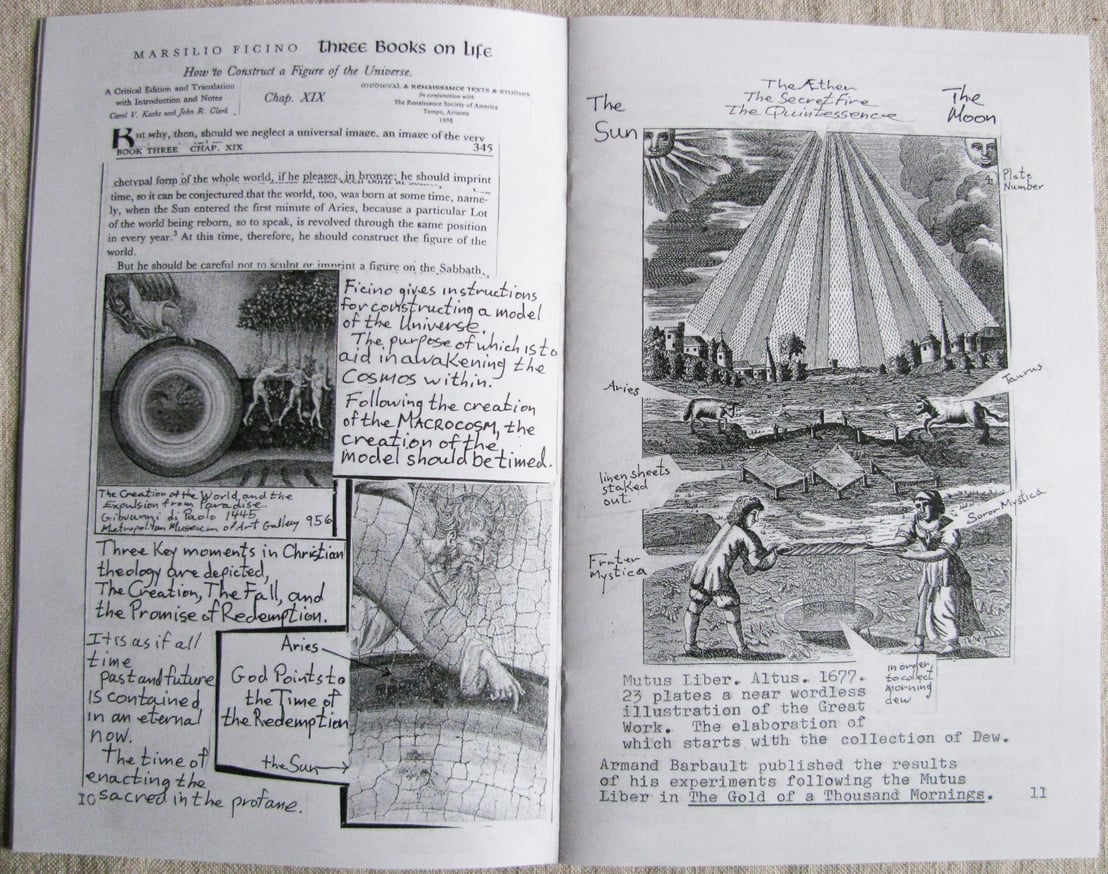 MARSILIO FICINO THREE BOOKS ON LIFE
How to Construct a Figure of the Universe.
A Critical Edition and Translation
with Introduction and Notes
Carol V. Kaske and John R. Clark
Chap. XIX
MEDIEVAL & RENAISSANCE TEXTS & STUDIES
In conjunction with
The Renaissance Society of America
Tempe, Arizona
1998
But why, then, should we neglect a universal image, an image of the very
BOOK THREE CHAP. XIX 345
chetypal form of the whole world, if he pleases, in bronze; he should imprint
time, so it can be conjectured that the world, too, was born at some time, name-
ly, when the Sun entered the first minute of Aries, because a particular Lot
of the world being reborn, so to speak, is revolved through the same position
in every year.³ At this time, therefore, he should construct the figure of the
world.
But he should be careful not to sculpt or imprint a figure on the Sabbath,
Ficino gives instructions
for constructing a model
of the Universe.
The purpose of which is to
aid in awakening the
Cosmos within.
Following the creation
of the MACROCOSM, the
creation of the
model should be timed.
The Creation of the World, and the
Expulsion from Paradise.
Giovanni di Paolo 1445
Metropolitan Museum of Art Gallery 956
Three Key moments in Christian
theology are depicted,
The Creation, The Fall, and
the Promise of Redemption.
It is as if all
time
past and future
is contained
in an eternal
now.
The time of
enacting the
sacred in the profane.
10
Aries
God Points to
the Time of
the Redemption
the Sun
The
Sun
The Æther
The Secret Fire
The Quintessence
The
Moon
4
Plate
Number
Aries
Taurus
linen sheets
staked
out.
Soror Mystica
Frater
Mystica
in order
to collect
morning
dew
Mutus Liber. Altus. 1677.
23 plates a near wordless
illustration of the Great
Work. The elaboration of
which starts with the collection of Dew.
Armand Barbault published the results
of his experiments following the Mutus
Liber in The Gold of a Thousand Mornings.
11